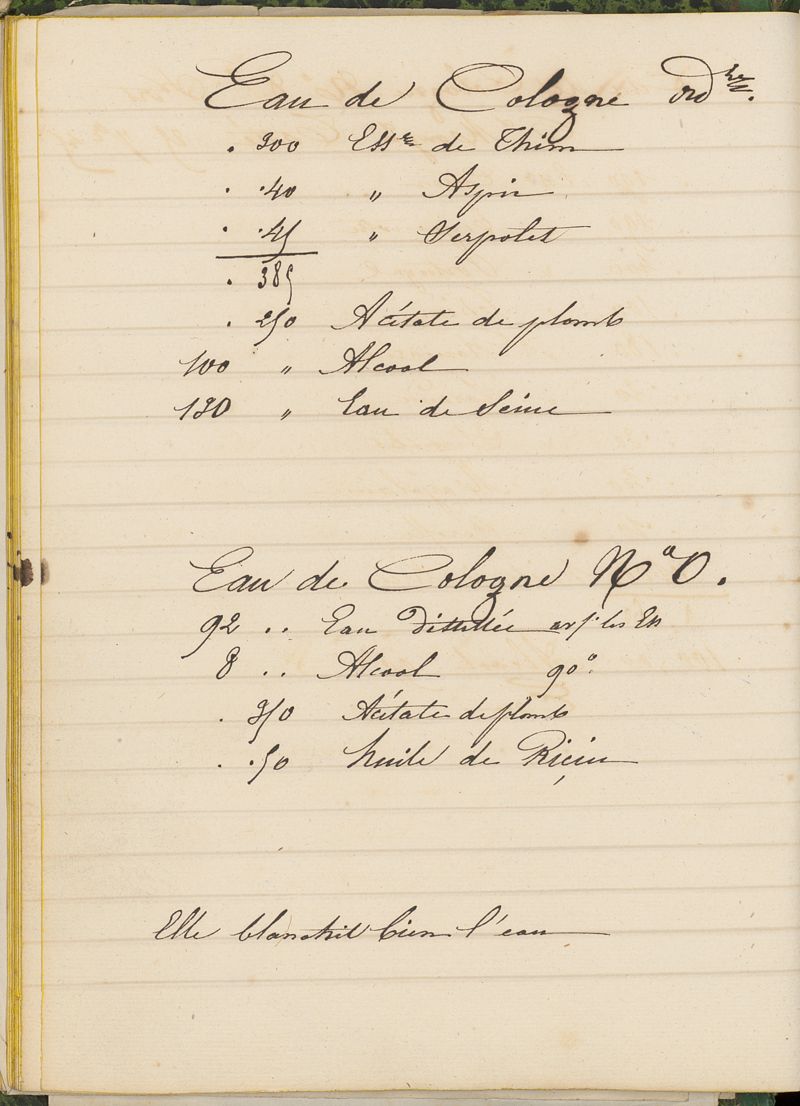 Eau de Cologne ord.re
. 300 Essce de Thim
. .40 " Aspic
. .45 " Serpolet
. 385
. 250 Acétate de plomb
100 " Alcool
130 " Eau de Seine
Eau de Cologne No 0.
92 .. Eau distillée les Ess
8 .. Alcool 90°.
. 350 Acétate de plomb
. .50 huile de Ricin
Elle blanchit bien l'eau